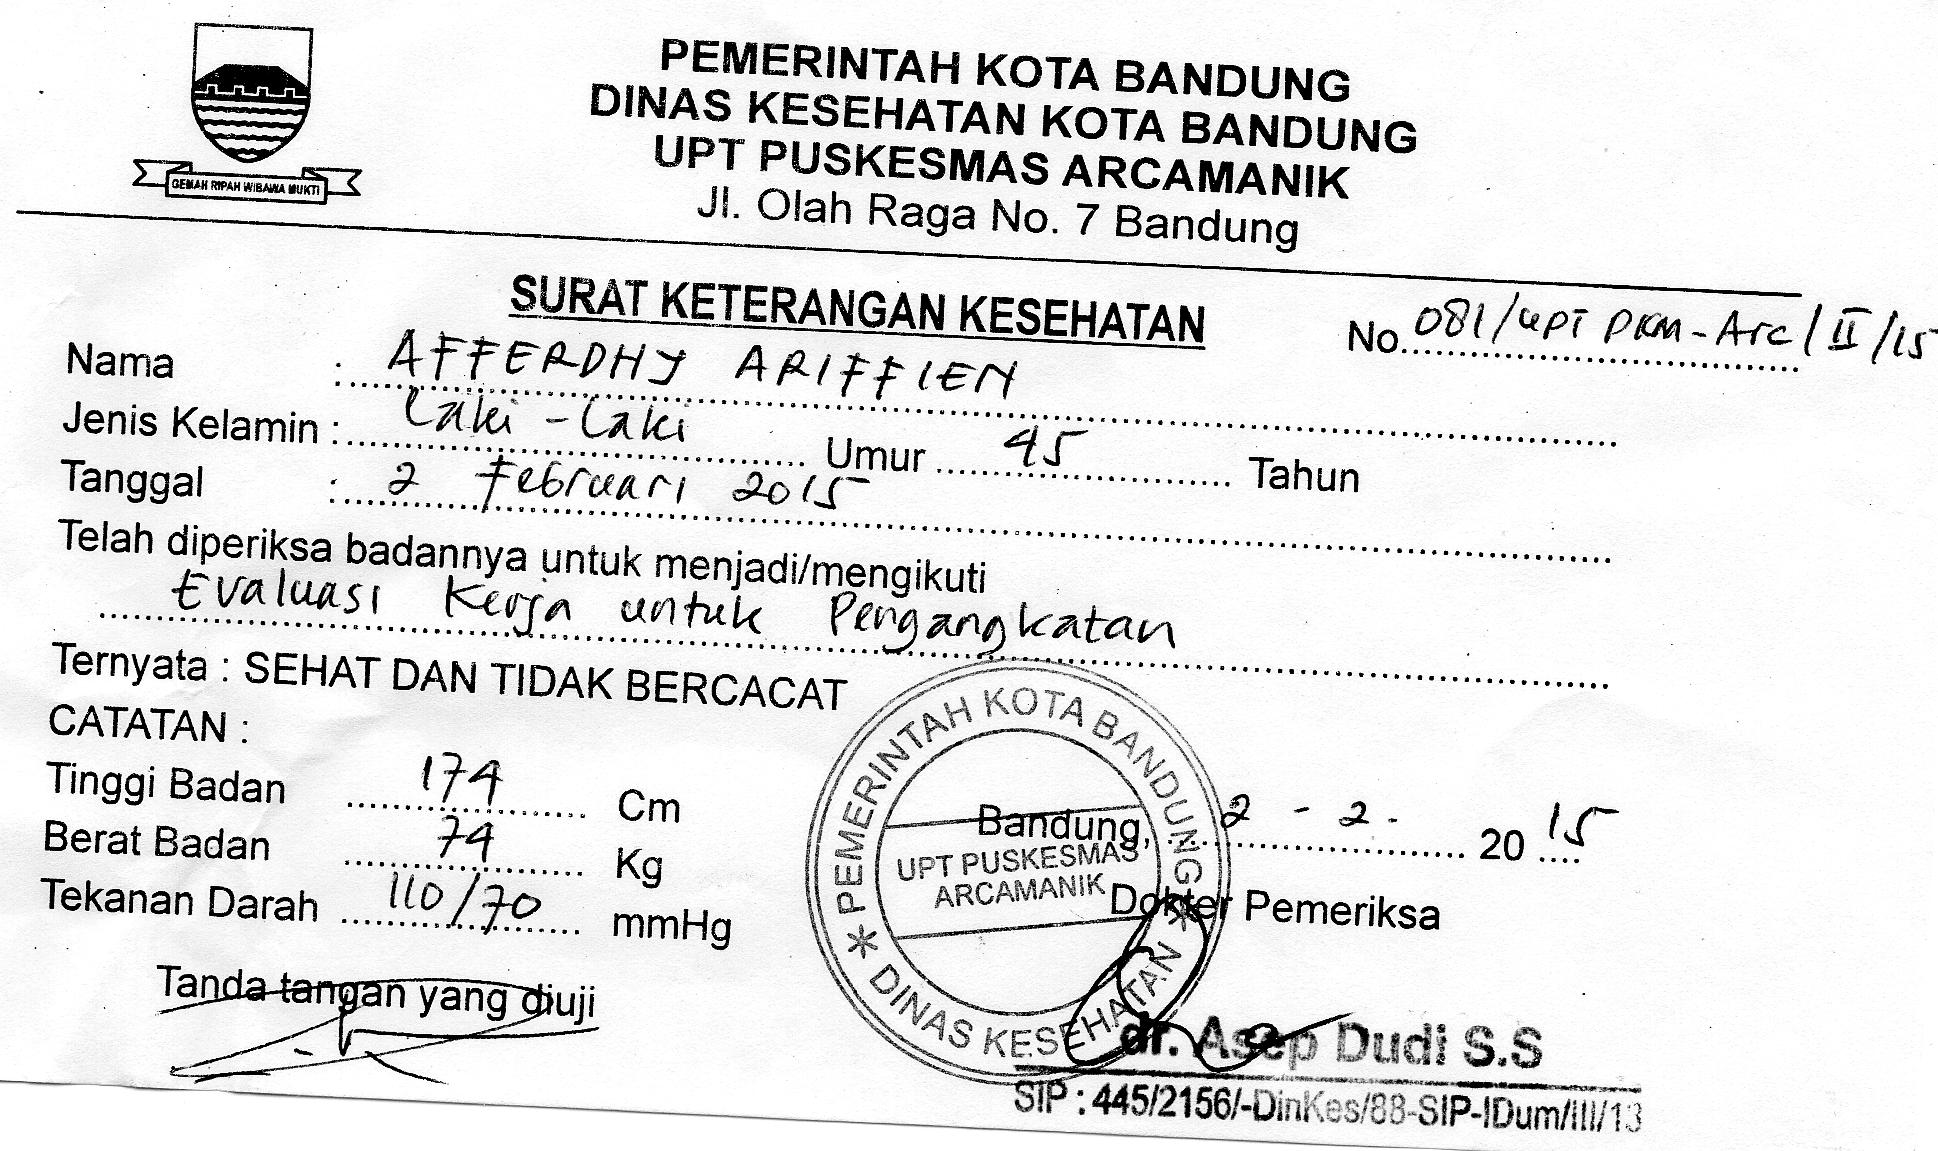 GEMAH RIPAH WIBAWA MUKTI
PEMERINTAH KOTA BANDUNG
DINAS KESEHATAN KOTA BANDUNG
UPT PUSKESMAS ARCAMANIK
Jl. Olah Raga No. 7 Bandung
SURAT KETERANGAN KESEHATAN
No. 081/UPT PKM-Arc/II/15
Nama : AFFERDHY ARIFFIEN
Jenis Kelamin : Laki-Laki Umur 45 Tahun
Tanggal : 2 Februari 2015
Telah diperiksa badannya untuk menjadi/mengikuti
Evaluasi Kerja untuk Pengangkatan
Ternyata : SEHAT DAN TIDAK BERCACAT
CATATAN :
Tinggi Badan 174 Cm
Berat Badan 74 Kg
Tekanan Darah 110/70 mmHg
Bandung, 2 - 2 - 2015
Dokter Pemeriksa
PEMERINTAH KOTA BANDUNG
UPT PUSKESMAS
ARCAMANIK
* DINAS KESEHATAN *
Tanda tangan yang diuji
dr. Asep Dudi S.S
SIP : 445/2156/-DinKes/88-SIP-IDum/III/13